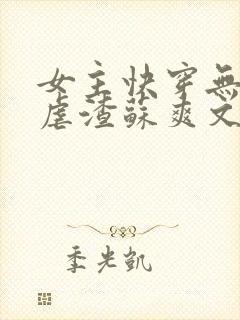 女主快穿無
虐渣蘇爽文
季光凱